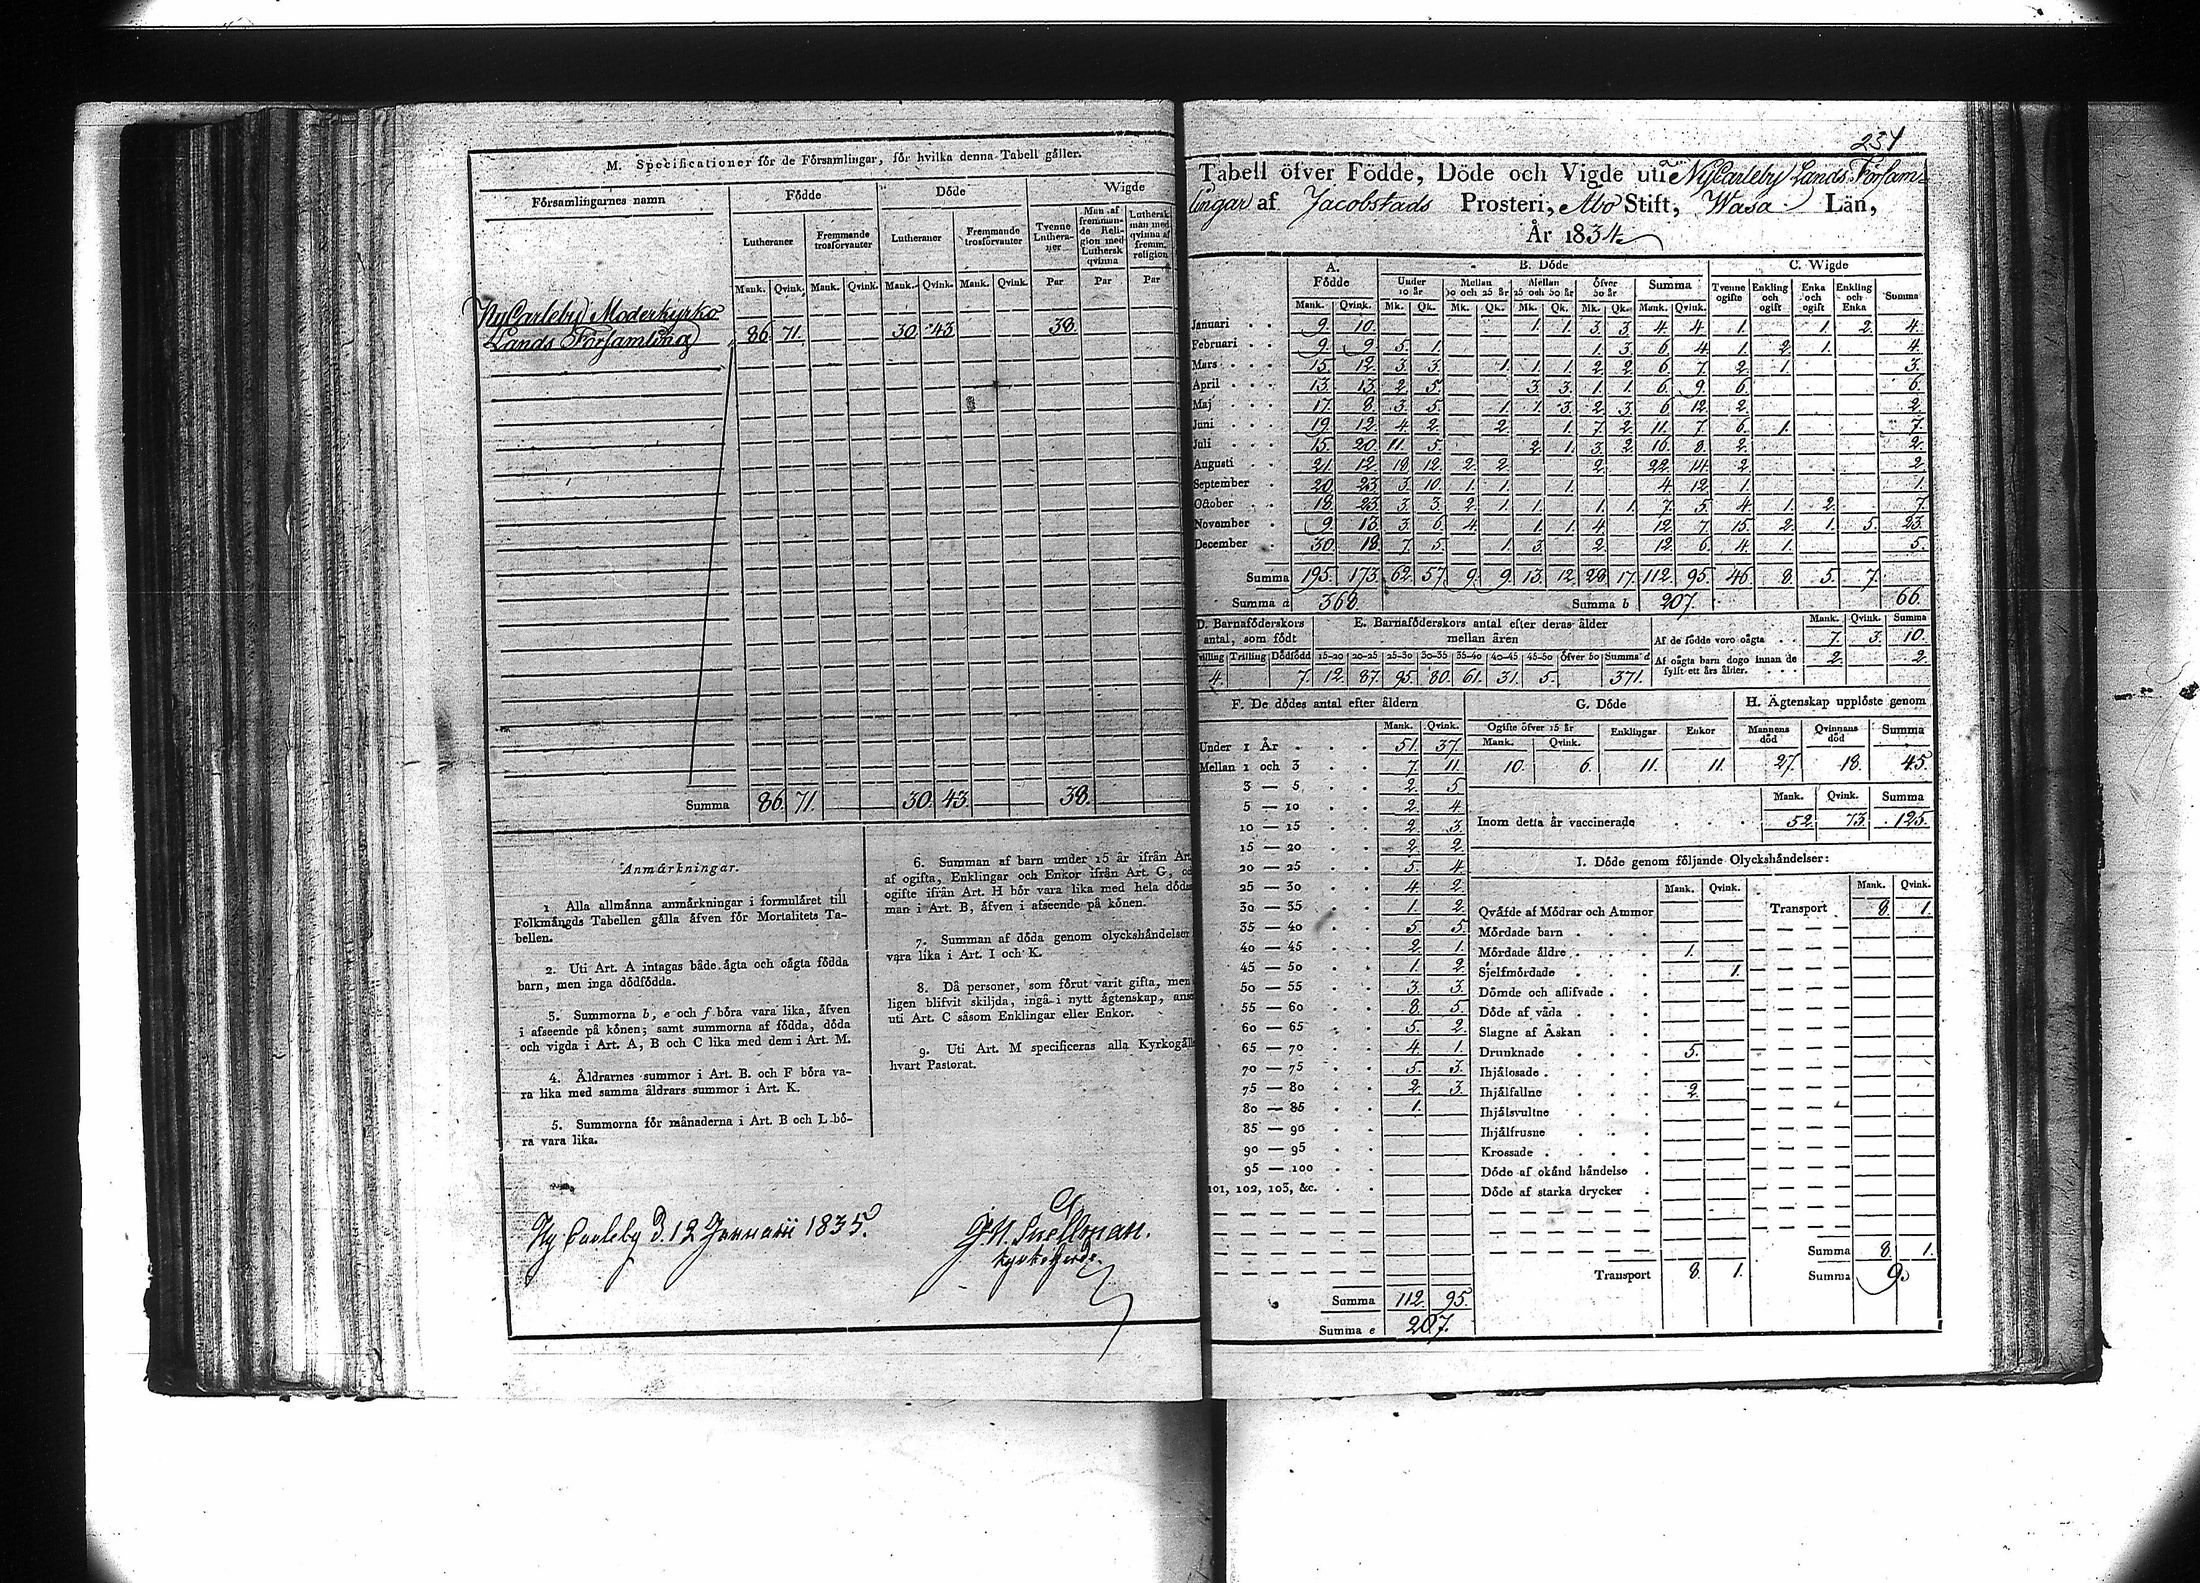 M. Specificationer för de Församlingar, för hvilka denna Tabell gäller.
Församlingarnes namn Födde Döde Wigde
Lutheraner Fremmande trosförvanter Lutheraner Fremmande trosförvanter Tvenne Lutheraner Man af fremmande Religion med Luthersk qvinna Luthersk man med qvinna af fremm. religion
Mank. Qvink. Mank. Qvink. Mank. Qvink. Mank. Qvink. Par Par Par
NyCarleby Moderkyrko
Lands Församling 86. 71. 30. 43. 38.
Summa 86. 71. 30. 43. 38.
Anmärkningar.
1 Alla allmänna anmärkningar i formuläret till
Folkmängds Tabellen gälla äfven för Mortalitets Ta-
bellen.
2. Uti Art. A intagas både ägta och oägta födda
barn, men inga dödfödda.
3. Summorna b, e och f böra vara lika, äfven
i afseende på könen; samt summorna af födda, döda
och vigda i Art. A, B och C lika med dem i Art. M.
4. Åldrarnes summor i Art. B. och F böra va-
ra lika med samma åldrars summor i Art. K.
5. Summorna för månaderna i Art. B och L bö-
ra vara lika.
6. Summan af barn under 15 år ifrån Art.
af ogifta, Enklingar och Enkor ifrån Art. G,
ogifte ifrån Art. H bör vara lika med hela
man i Art. B, äfven i afseende på könen.
7. Summan af döda genom olyckshändelser
vara lika i Art. I och K.
8. Då personer, som förut varit gifta, men
ligen blifvit skiljda, ingå i nytt ägtenskap,
uti Art. C såsom Enklingar eller Enkor.
9. Uti Art. M specificeras alla
hvart Pastorat.
Ny Carleby d. 12 Januarii 1835.
J. H. Snellman.
kyrkoherde.
231
Tabell öfver Födde, Döde och Vigde uti NyCarleby Lands Försam-
lingar af Jacobstads Prosteri, Abo Stift, Wasa Län,
År 1834.
A. Födde B. Döde C. Wigde
Under 10 år Mellan 10 och 25 år Mellan 25 och 50 år Öfver 50 år Summa Tvenne ogifte Enkling och ogift Enka och ogift Enkling och Enka Summa
Mank. Qvink. Mk. Qk. Mk. Qk. Mk. Qk. Mk. Qk. Mank. Qvink.
Januari 9. 10. 1. 1. 3. 3. 4. 4. 1. 1. 2. 4.
Februari 9. 9. 5. 1. 1. 3. 6. 4. 1. 2. 1. 4.
Mars 15. 12. 3. 3. 1. 1. 1. 2. 2. 6. 7. 2. 1. 3.
April 13. 13. 2. 5. 3. 3. 1. 1. 6. 9. 6. 6.
Maj 17. 8. 3. 5. 1. 1. 3. 2. 3. 6. 12. 2. 2.
Juni 19. 12. 4. 2. 2. 1. 7. 2. 11. 7. 6. 1. 7.
Juli 15. 20. 11. 5. 2. 1. 3. 2. 16. 8. 2. 2.
Augusti 21. 12. 18. 12. 2. 2. 2. 22. 14. 2. 2.
September 20. 23. 3. 10. 1. 1. 1. 4. 12. 1. 1.
October 18. 23. 3. 3. 2. 1. 1. 1. 1. 7. 5. 4. 1. 2. 7.
November 9. 13. 3. 6. 4. 1. 1. 4. 12. 7. 15. 2. 1. 5. 23.
December 30. 18. 7. 5. 1. 3. 2. 12. 6. 4. 1. 5.
Summa 195. 173. 62. 57. 9. 9. 13. 12. 28. 17. 112. 95. 46. 8. 5. 7.
Summa a 368. Summa b 207. 66.
D. Barnaföderskors antal, som födt E. Barnaföderskors antal efter deras ålder mellan åren Mank. Qvink. Summa
Af de födde voro oägta 7. 3. 10.
Tvilling Trilling Dödfödd 15-20 20-25 25-30 30-35 35-40 40-45 45-50 Öfver 50 Summa d
Af oägta barn dogo innan de fyllt ett års ålder. 2. 2.
4. 7. 12. 87. 95. 80. 61. 31. 5. 371.
F. De dödes antal efter åldern
Mank. Qvink.
Under 1 År 51. 37.
Mellan 1 och 3 7. 11.
3 — 5 2. 5
5 — 10 2. 4.
10 — 15 2. 3.
15 — 20 2. 2.
20 — 25 5. 4.
25 — 30 4. 2.
30 — 35 1. 2.
35 — 40 5. 5.
40 — 45 2. 1.
45 — 50 1. 2.
50 — 55 3. 3.
55 — 60 8. 5.
60 — 65 5. 2.
65 — 70 4. 1.
70 — 75 5. 3.
75 — 80 2. 3.
80 — 85 1.
85 — 90
90 — 95
95 — 100
101, 102, 103, &c.
Summa 112. 95.
Summa e 207.
G. Döde H. Ägtenskap upplöste genom
Ogifte öfver 15 år Enklingar Enkor Mannens död Qvinnans död Summa
Mank. Qvink.
10. 6. 11. 11. 27. 18. 45.
Mank. Qvink. Summa
Inom detta år vaccinerade 52. 73. 125.
I. Döde genom följande Olyckshändelser:
Mank. Qvink. Mank. Qvink.
Qväfde af Mödrar och Ammor Transport 8. 1.
Mördade barn
Mördade äldre 1.
Sjelfmördade 1.
Dömde och aflifvade
Döde af våda
Slagne af Åskan
Drunknade 5.
Ihjälosade
Ihjälfallne 2.
Ihjälsvultne
Ihjälfrusne
Krossade
Döde af okänd händelse
Döde af starka drycker
Summa 8. 1.
Transport 8. 1. Summa 9.